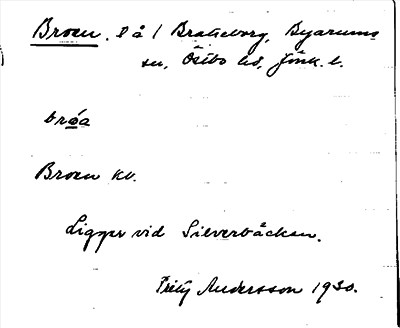 Broen, l å / Bratteborg, Byarums
sn, Östbo hd, Jönk. l.
brøa
Broen kv.
Ligger vid Silverbäcken.
Fritz Andersson 1930.